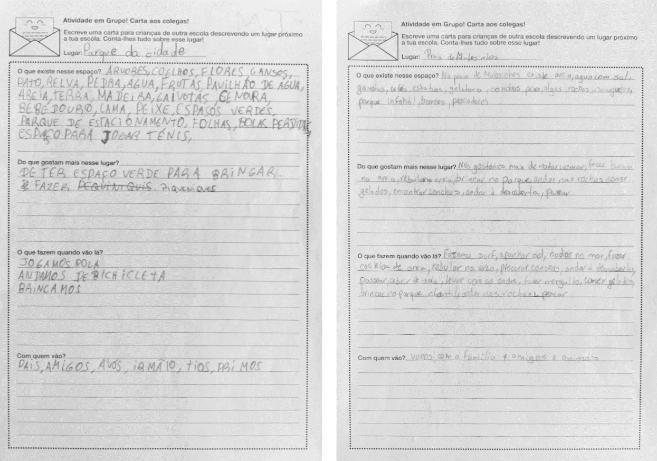 Atividade em Grupo! Carta aos colegas!
Escreve uma carta para crianças de outra escola descrevendo um lugar próximo
a tua escola. Conta-lhes tudo sobre esse lugar!
Lugar: Parque da cidade
O que existe nesse espaço? ÁRVORES, COELHOS, FLORES GANSOS,
PATO, RELVA, PEDRA, AGUA, FRUTAS PAVILHÃO DE AGUA,
AREIA, TERRA, MADEIRA, GAIVOTAS
BEBEDOURO, LAMA, PEIXE, ESPAÇOS VERDES,
PARQUE DE ESTACIONAMENTO, FOLHAS, BOLAS PERDIDAS
ESPAÇO PARA JOGAR TÉNIS,
Do que gostam mais nesse lugar?
DE TER ESPAÇO VERDE PARA BRINCAR
E FAZER Piqueniques
O que fazem quando vão lá?
JOGAMOS BOLA
ANDAMOS DE BICHICLETA
BRINCAMOS
Com quem vão?
PAIS, AMIGOS, AVÓS, IRMÃ/O, TIOS, PRIMOS
Atividade em Grupo! Carta aos colegas!
Escreve uma carta para crianças de outra escola descrevendo um lugar próximo
a tua escola. Conta-lhes tudo sobre esse lugar!
Lugar: Praia de Matosinhos
O que existe nesse espaço? Na praia de Matosinhos existe areia, agua com sal,
gaivotas, estatua, gelataria, conchas, algas, rochas,
parque infantil, barcos, pescadores
Do que gostam mais nesse lugar? Nós gostamos mais de
na areia, rebolar na areia, brincar no parque, andar nas rochas, comer
gelados, encontrar conchas, andar à descoberta, passear
O que fazem quando vão lá? Fazemos surf, apanhar sol, nadar no mar, fazer
castelos de areia, rebolar na areia, procurar conchas, andar à descoberta,
passear, fazer mergulho, comer gelados,
brincar no parque infantil, andar nas rochas e pescar
Com quem vão? Vamos com a família e amigos e animais